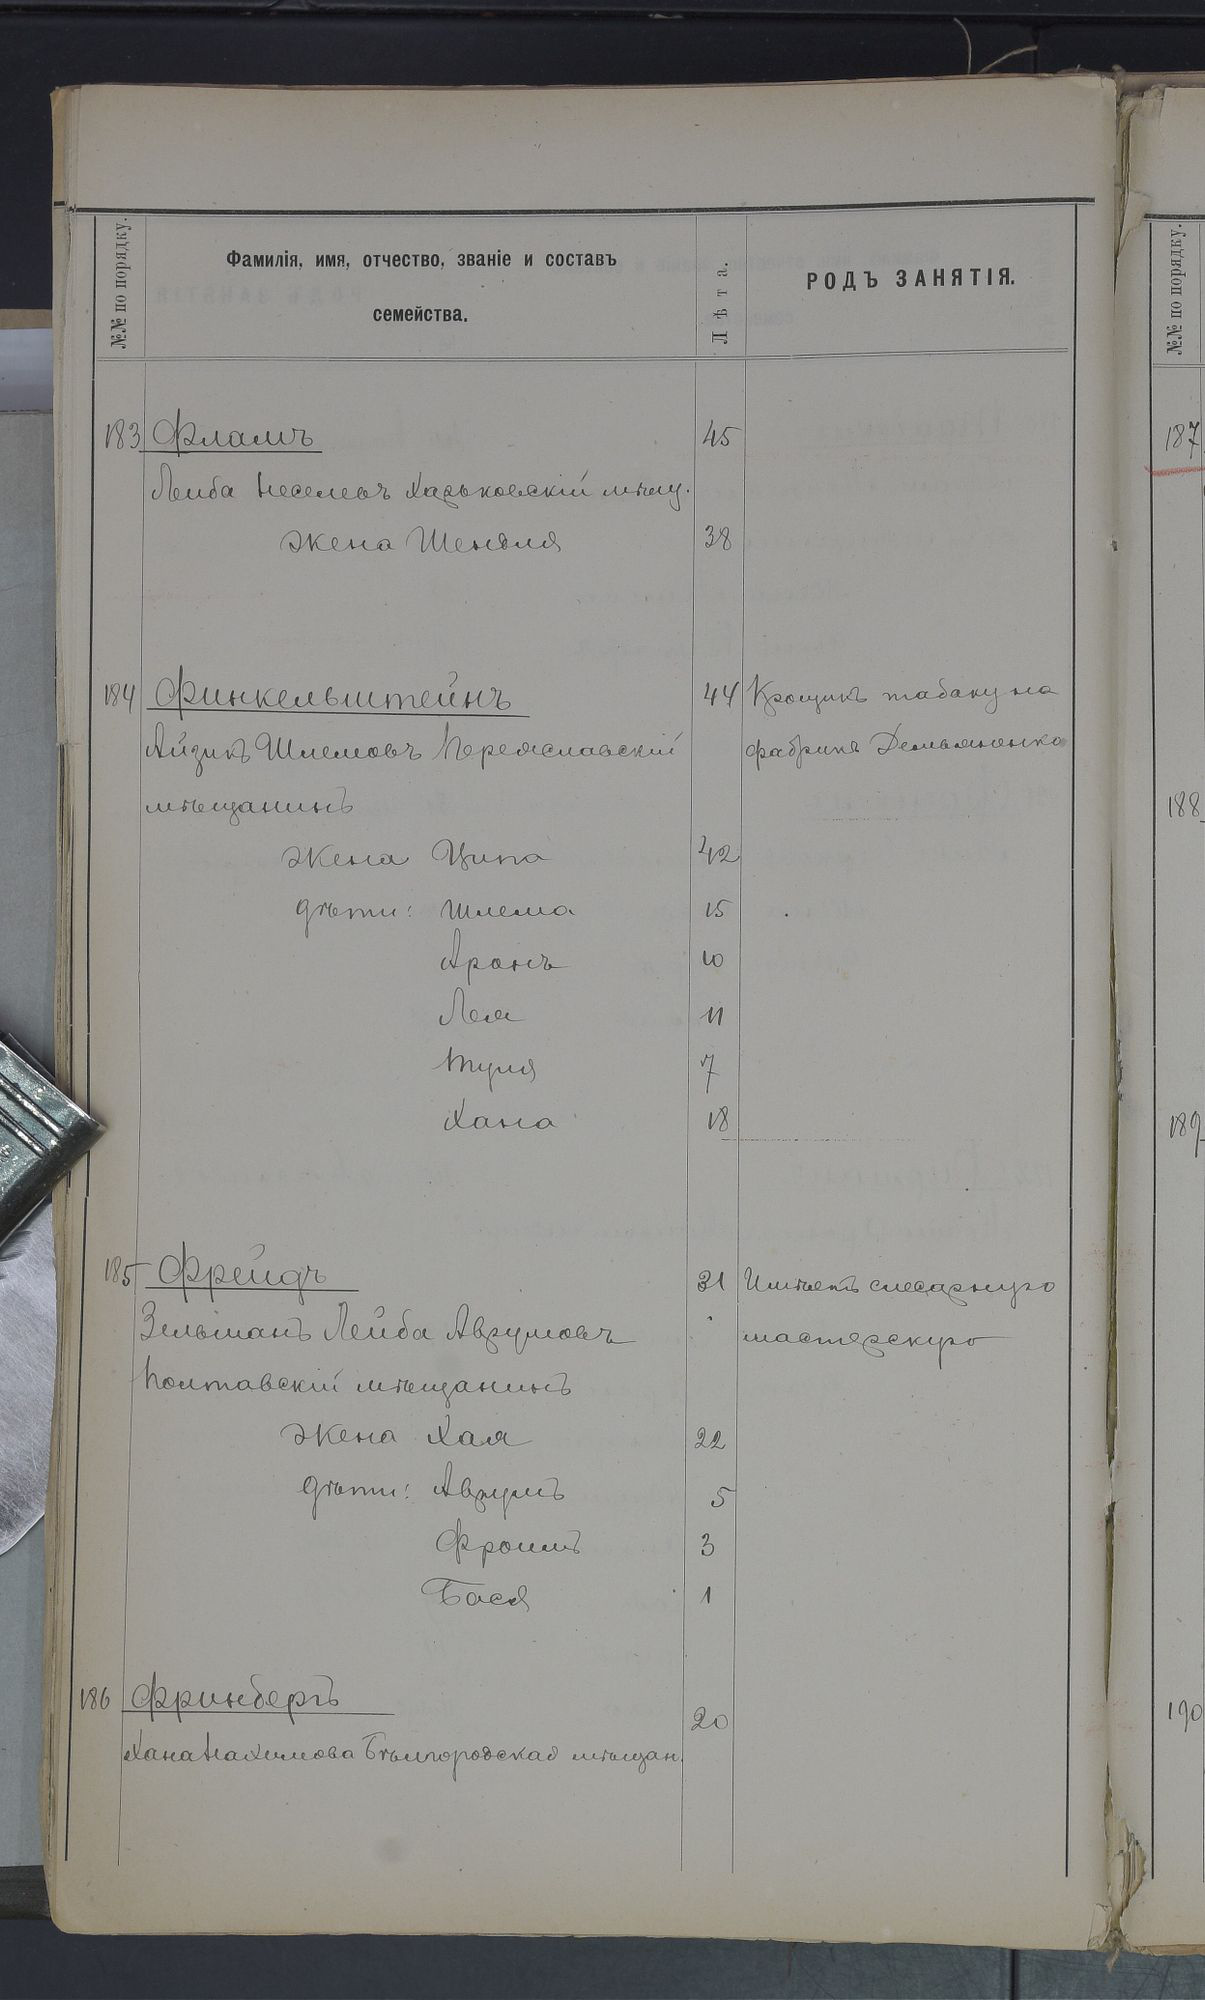 №№ по порядку.
Фамилія, имя, отчество, званіе и составъ
семейства.
Лѣта.
РОДЪ ЗАНЯТІЯ.
183 Фламъ 45
Лейба Неселевъ Харьковскій мѣщ.
жена Шендля 38
184 Финкельштейнъ 44 Крощикъ табаку на
Айзикъ Шлемовъ Переяславскій фабрикѣ Демьяненко
мѣщанинъ
жена Ципа 42
дѣти: Шлема 15
Аронъ 10
Лея 11
Туля 7
Хана 18
185 Фрейдъ 31 Имѣетъ слесарную
Зельманъ Лейба Аврумовъ мастерскую
Полтавскій мѣщанинъ
жена Хая 22
дѣти: Аврумъ 5
Фроимъ 3
Бася 1
186 Фринбергъ 20
Хана Нахимова Бѣлгородская мѣщан.
№№ по порядку.
187
188
189
190